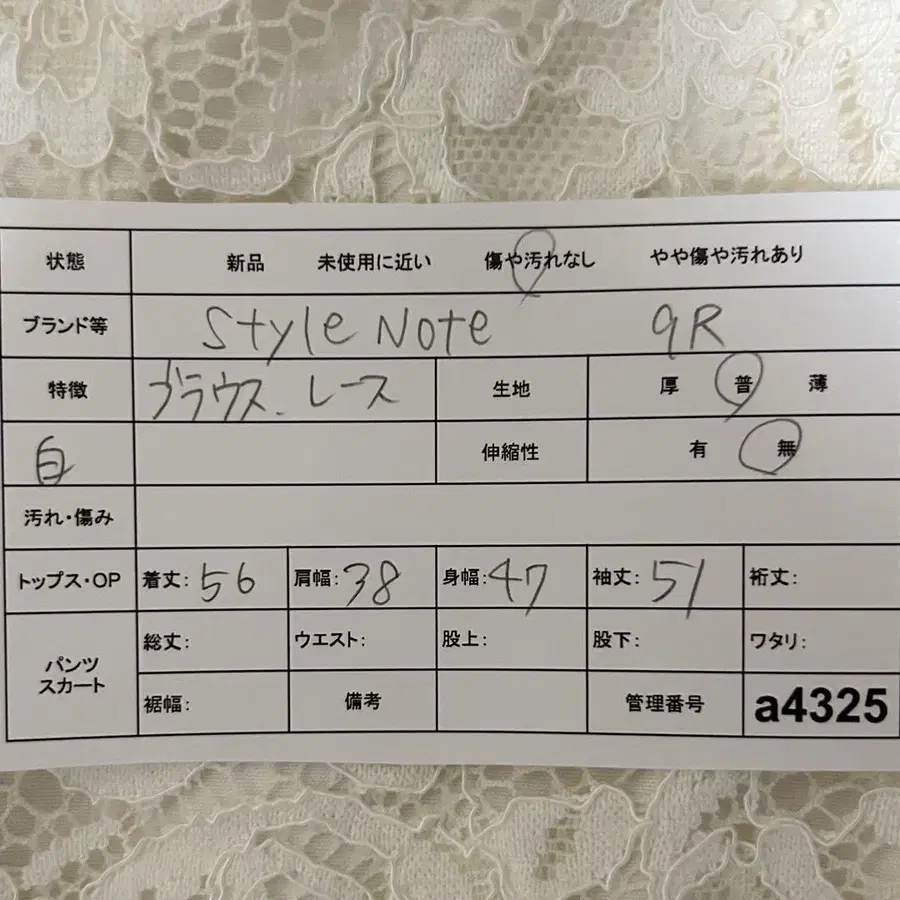 状態 新品 未使用に近い 傷や汚れなし やや傷や汚れあり
ブランド等 Style Note 9R
特徴 ブラウス.レース 生地 厚 普 薄
白 伸縮性 有 無
汚れ・傷み
トップス・OP 着丈:56 肩幅:38 身幅:47 袖丈:51 裄丈:
パンツ
スカート
総丈: ウエスト: 股上: 股下: ワタリ:
裾幅: 備考 管理番号 a4325